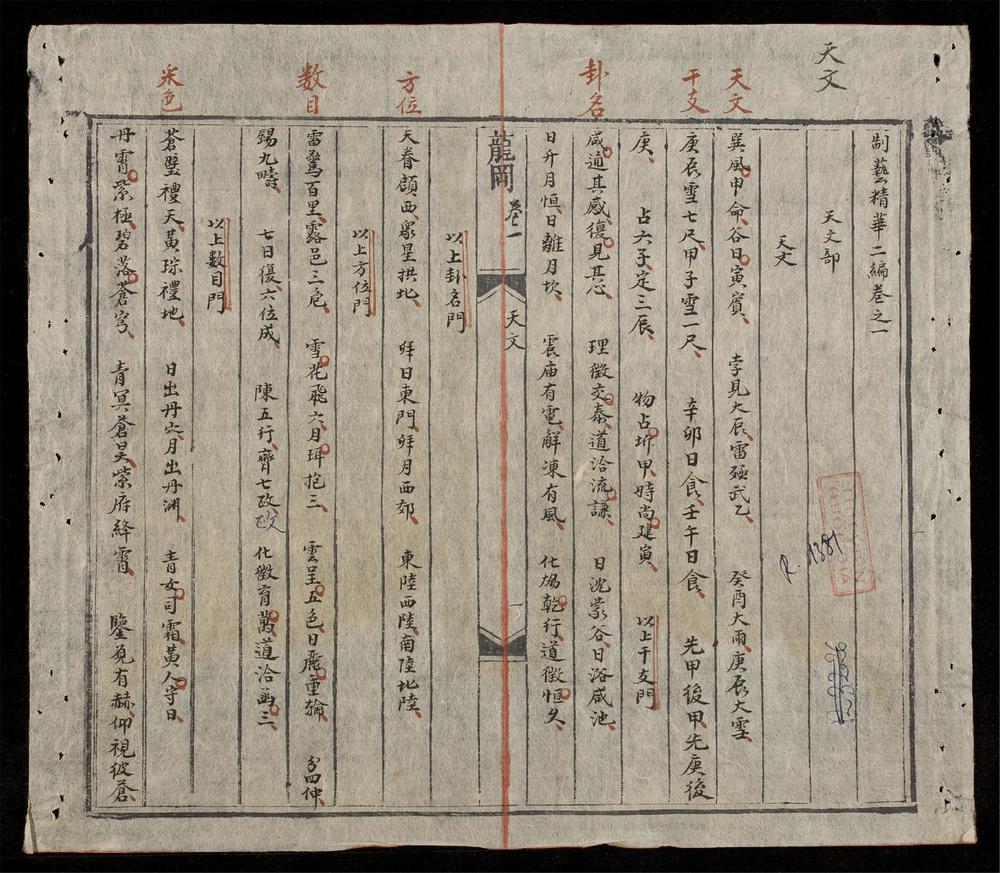 天文
天文
干支
卦名
方位
数目
采色
制藝精華二編卷之一
天文部
天文
巽風申命、谷日寅賓、 孛見大辰、雷殛武乙、 癸酉大雨、庚辰大雪、
庚辰雪七尺、甲子雪一尺、 辛卯日食、壬午日食、 先甲後甲、先庚後
庚、 占六子定三辰、 物占坼甲、時尚建寅、 以上干支門
咸通其感、復見其心、 理徵交泰、道洽流謙、 日沈蒙谷、日浴咸池、
日升月恒、日離月坎、 震庙有電、解凍有風、 化栩乾行、道徵恒久、
龍岡 卷一 天文 一
以上卦名門
天眷顧西、衆星拱北、 拜日東門、拜月西郊、 東陸西陸、南陸北陸、
以上方位門
雷驚百里、露邑三危、 雪花飛六、月珥抱三、 雲呈五色、日麗重輪、 分四仲、
錫九疇、 七日復、六位成、 陳五行、齊七政、政 化徵育萬、道洽函三、
以上數目門
蒼璧禮天、黃琮禮地、 日出丹穴、月出丹淵、 青女司霜、黃人守日、
丹霄紫極、碧落蒼穹、 青冥蒼昊、紫府絳霄、 鑒觅有赫、仰視彼蒼、
R. 1381